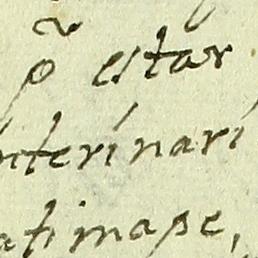 põ estar
nterinari
atimase,